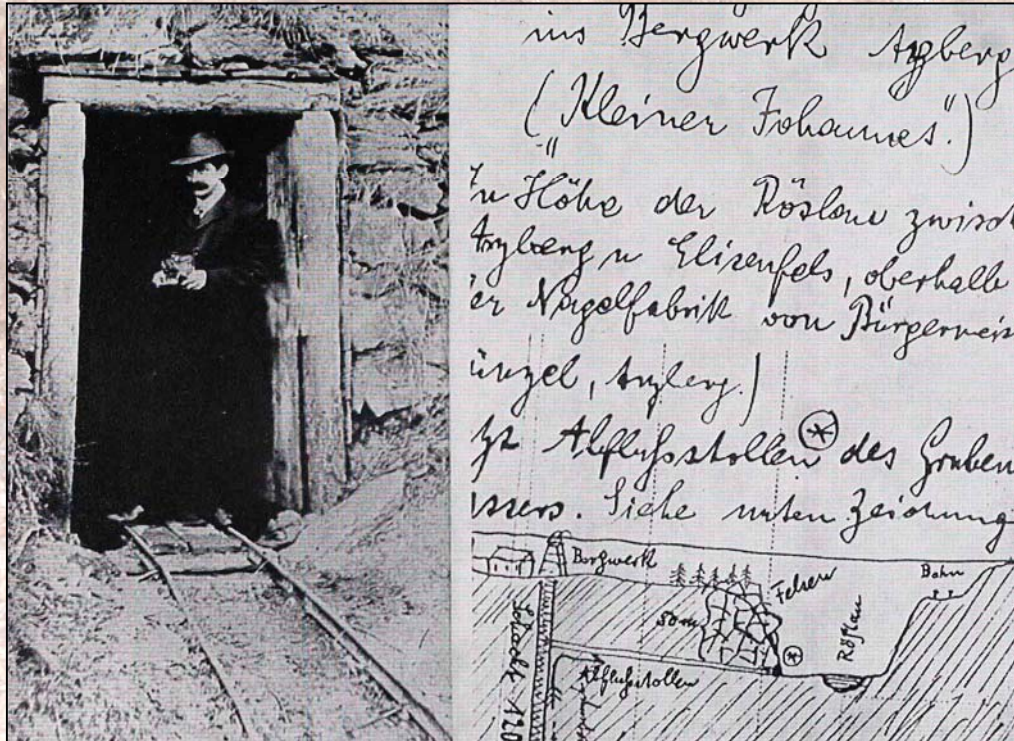 ins Bergwerk Arzberg
("Kleiner Johannes".)
In Höhe der Röslau zwisch
Arzberg u Elisenfels, oberhalb
er Nagelfabrik von Bürgermeis
ünzel, Arzberg.)
tzt Abflußstollen * des Gruben
ssers. Siehe unten Zeichnung
Bergwerk
Bahn
Felsen
50 m
Röslau
*
Abflußstollen
Schacht 120